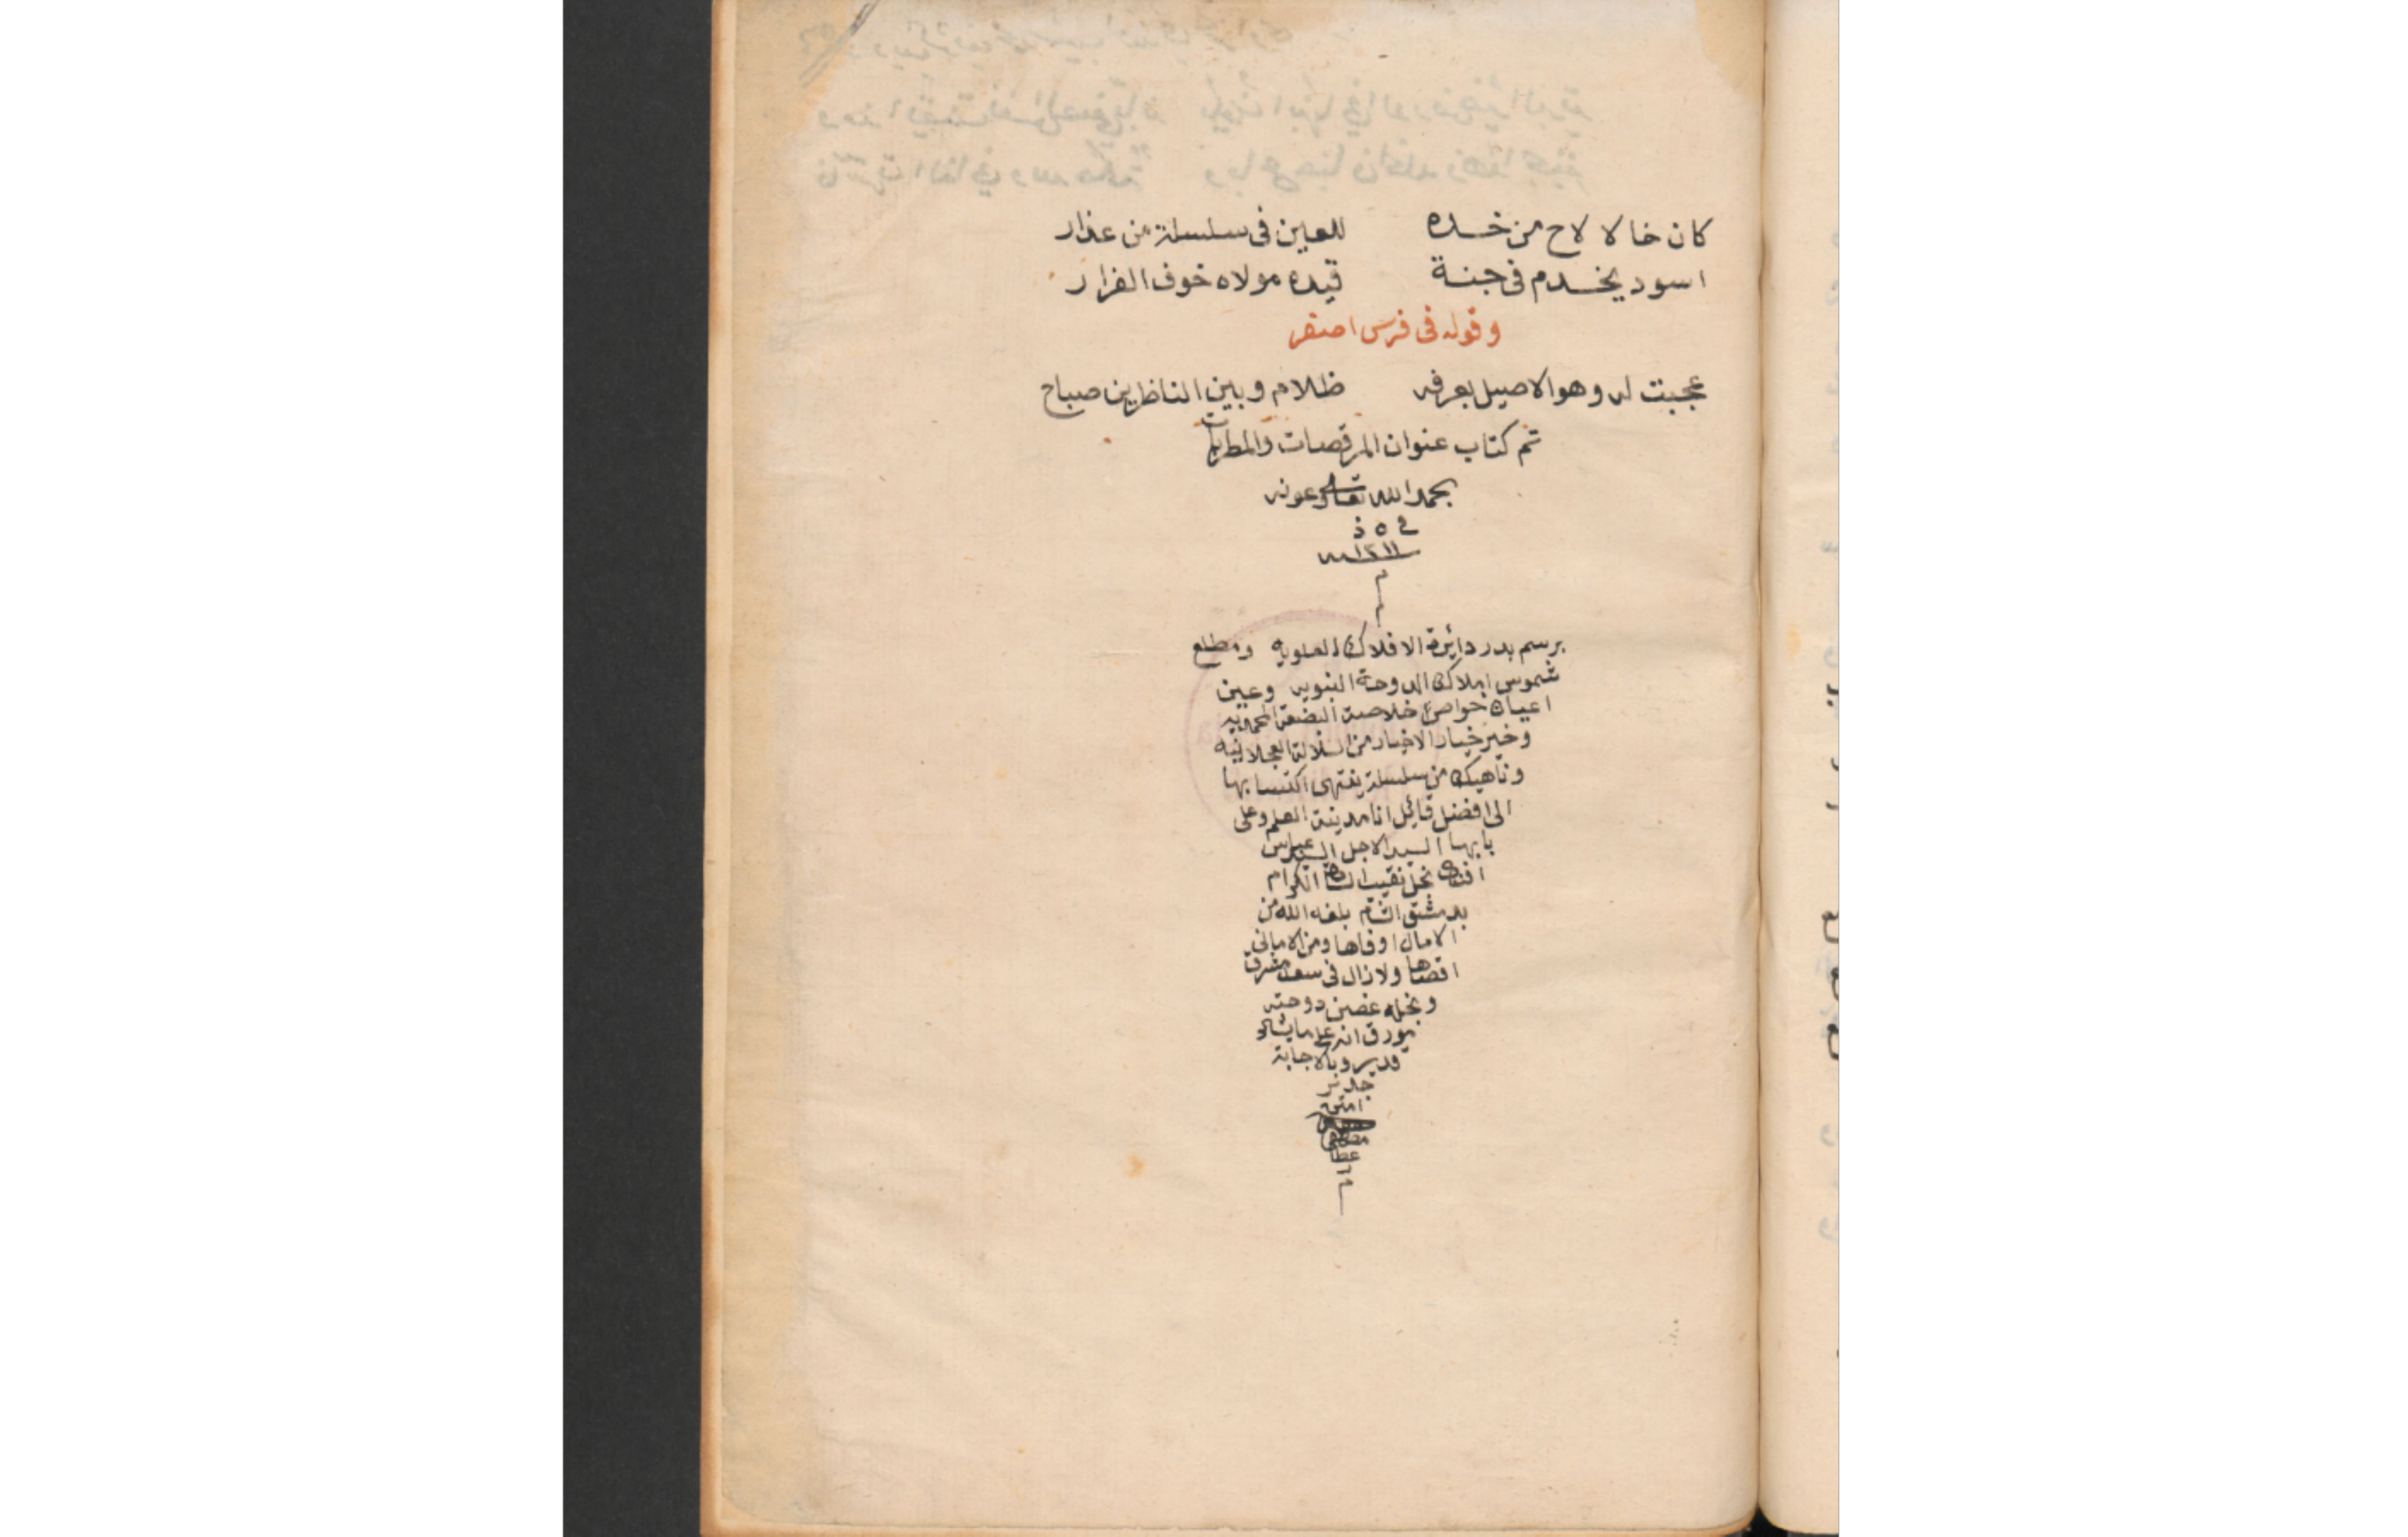 كان خالا لاح من خده للعين فى سلسلة من عذار
اسود يخدم فى جنة قيده مولاه خوف الفرار
وقوله فى فرس اصفر
عجبت له وهو الاصيل بعرفه ظلام وبين الناظرين صباح
تم كتاب عنوان المرقصات والمطربات
بحمد الله تعالى وعونه
فى ٥ ذ
١٢١١
م
برسم بدر دائرة الافلاك العلويه ومطلع
شموس املاك الدوحة النبويه وعين
اعيان خواص خلاصة البضعة المحمديه
وخير خيار الاخيار من السلالة العجلانيه
وناهيك من سلسلة ينتهى اكتسابها
الى افضل قائل انا مدينة العلم وعلى
بابها السيد الاجل السيد عباس
افندى نجل نقيب السادة الكرام
بدمشق الشام بلغه الله من
الامال اوفاها ومن الامانى
اقصاها ولا زال فى سعد مشرق
ونجله غصن دوحته
مورق انه على ما يشاء
قدير وبالاجابة
جدير